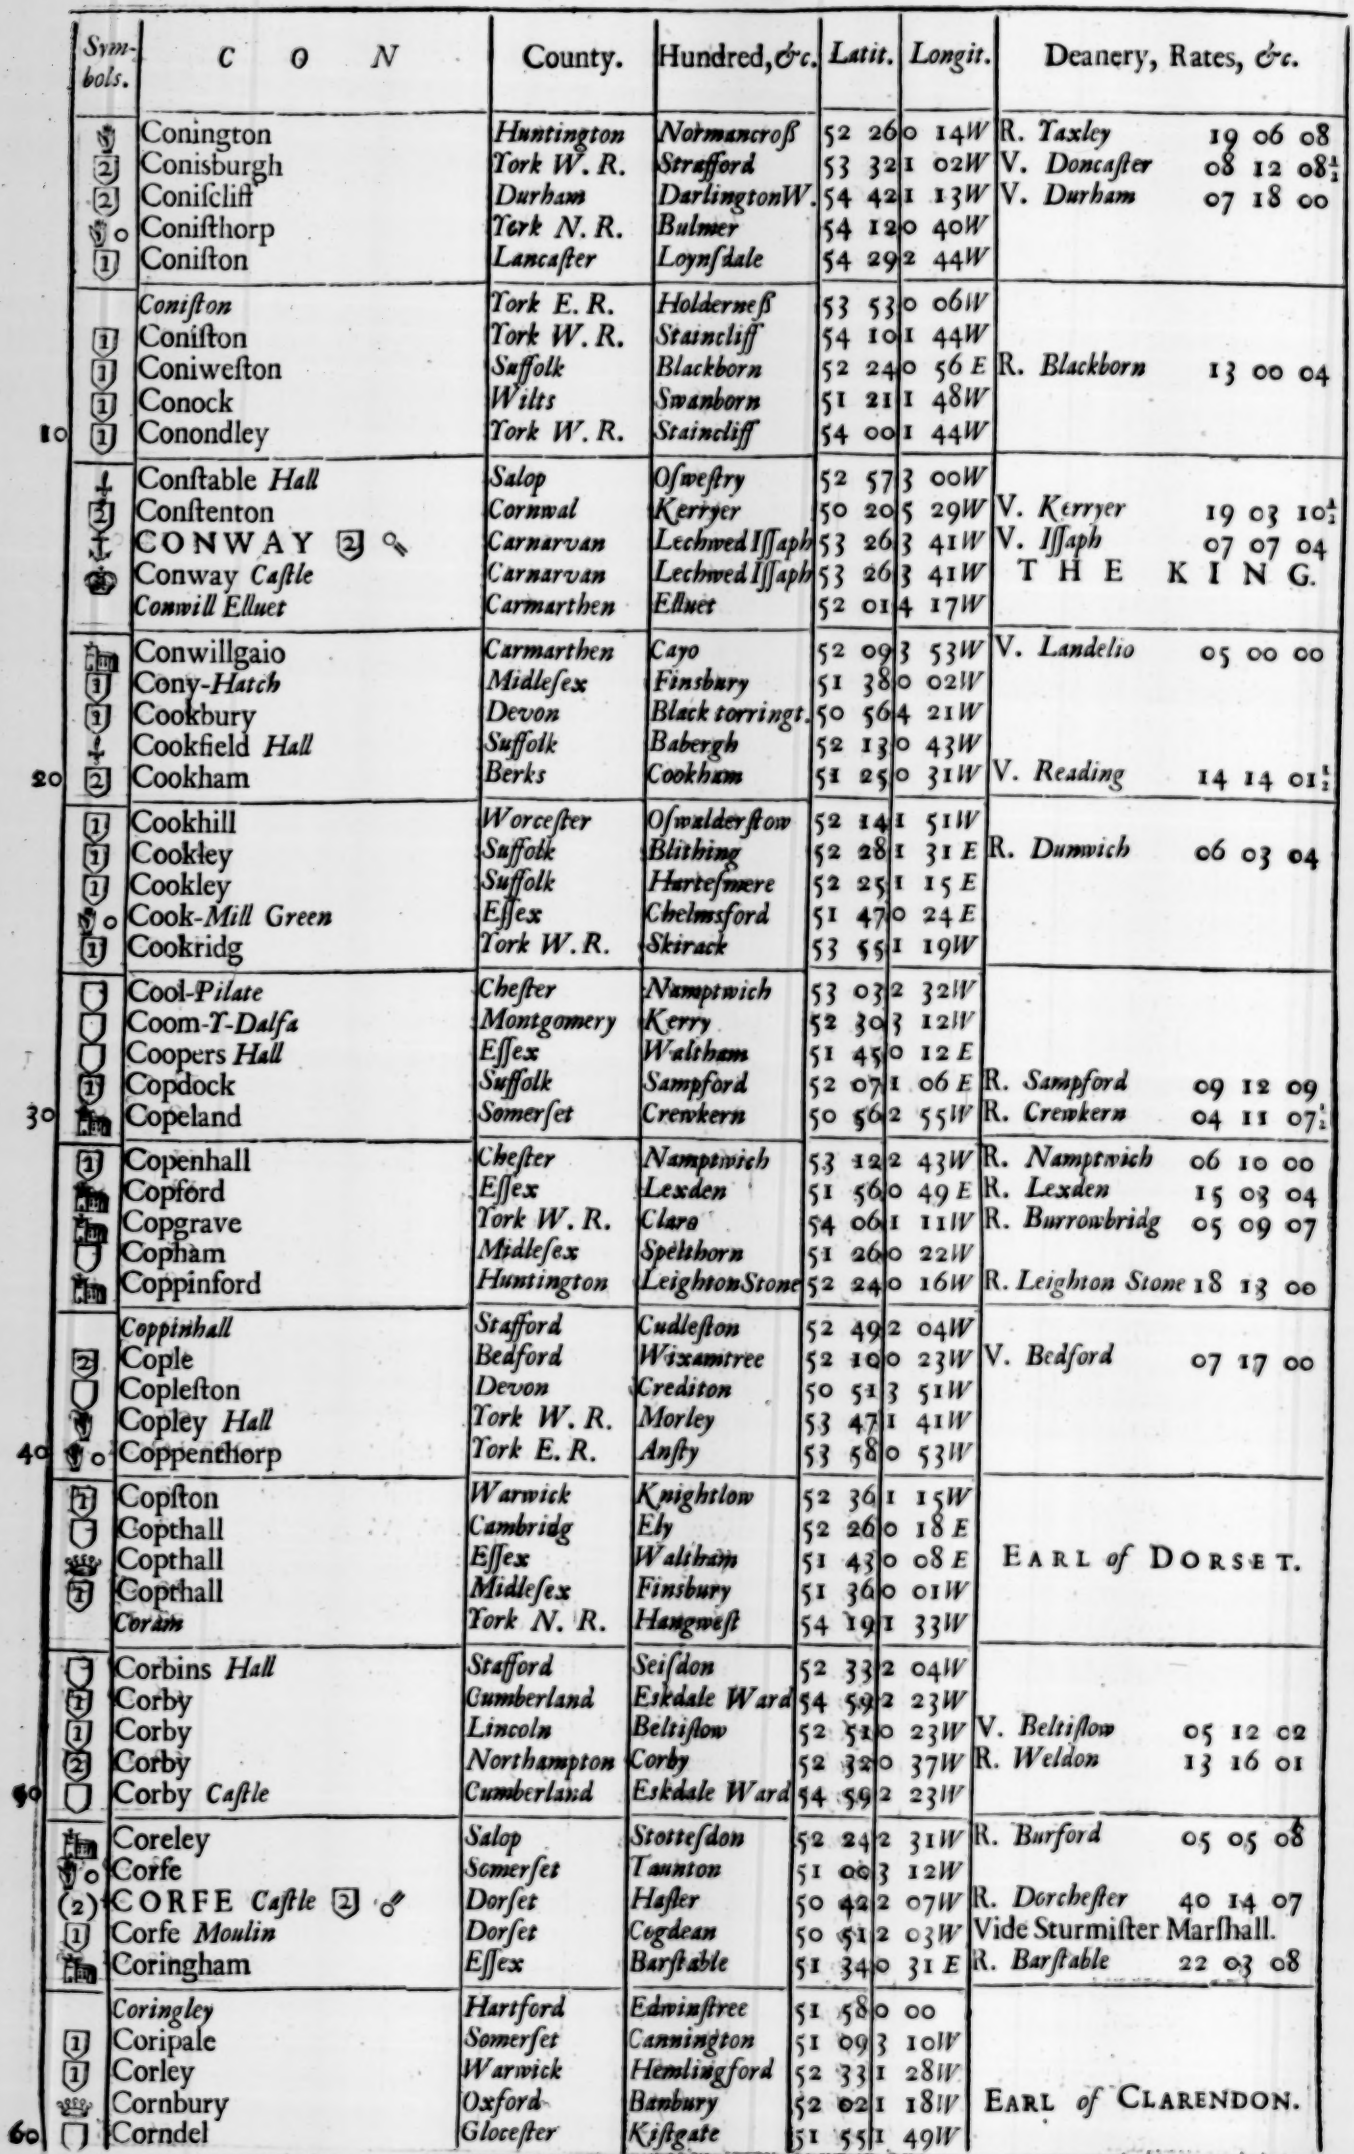 Sym-bols. C O N County. Hundred, &c. Latit. Longit. Deanery, Rates, &c.
Conington Huntington Normancroß 52 26 0 14W R. Yaxley 19 06 08
2 Conisburgh York W. R. Strafford 53 32 1 02W V. Doncaſter 08 12 08½
2 Coniſcliff Durham Darlington W. 54 42 1 13W V. Durham 07 18 00
Coniſthorp York N. R. Bulmer 54 12 0 40W
1 Coniſton Lancaſter Loynſdale 54 29 2 44W
Coniſton York E. R. Holderneß 53 53 0 06W
1 Coniſton York W. R. Staincliff 54 10 1 44W
1 Coniweſton Suffolk Blackborn 52 24 0 56 E R. Blackborn 13 00 04
1 Conock Wilts Swanborn 51 21 1 48W
10 1 Conondley York W. R. Staincliff 54 00 1 44W
Conſtable Hall Salop Oſweſtry 52 57 3 00W
2 Conſtenton Cornwal Kerryer 50 20 5 29W V. Kerryer 19 03 10½
CONWAY 2 Carnarvan Lechwed Iſſaph 53 26 3 41W V. Iſſaph 07 07 04
Conway Caſtle Carnarvan Lechwed Iſſaph 53 26 3 41W THE KING.
Conwill Elluet Carmarthen Elluet 52 01 4 17W
Conwillgaio Carmarthen Cayo 52 09 3 53W V. Landelio 05 00 00
1 Cony-Hatch Midleſex Finsbury 51 38 0 02W
1 Cookbury Devon Black torringt. 50 56 4 21W
Cookfield Hall Suffolk Babergh 52 13 0 43W
20 2 Cookham Berks Cookham 51 25 0 31W V. Reading 14 14 01½
1 Cookhill Worceſter Oſwalderſtow 52 14 1 51W
1 Cookley Suffolk Blithing 52 28 1 31 E R. Dunwich 06 03 04
1 Cookley Suffolk Harteſmere 52 25 1 15 E
Cook-Mill Green Eſſex Chelmsford 51 47 0 24 E
1 Cookridg York W. R. Skirack 53 55 1 19W
Cool-Pilate Cheſter Namptwich 53 03 2 32W
Coom-Y-Dalfa Montgomery Kerry 52 30 3 12W
Coopers Hall Eſſex Waltham 51 45 0 12 E
1 Copdock Suffolk Sampford 52 07 1 06 E R. Sampford 09 12 09
30 Copeland Somerſet Crewkern 50 56 2 55W R. Crewkern 04 11 07½
1 Copenhall Cheſter Namptwich 53 12 2 43W R. Namptwich 06 10 00
Copford Eſſex Lexden 51 56 0 49 E R. Lexden 15 03 04
Copgrave York W. R. Claro 54 06 1 11W R. Burrowbridg 05 09 07
Copham Midleſex Spelthorn 51 26 0 22W
Coppinford Huntington Leighton Stone 52 24 0 16W R. Leighton Stone 18 13 00
Coppinhall Stafford Cudleſton 52 49 2 04W
2 Cople Bedford Wixamtree 52 10 0 23W V. Bedford 07 17 00
Copleſton Devon Crediton 50 51 3 51W
Copley Hall York W. R. Morley 53 47 1 41W
40 Coppenthorp York E. R. Anſty 53 58 0 53W
1 Copſton Warwick Knightlow 52 36 1 15W
Copthall Cambridg Ely 52 26 0 18 E
Copthall Eſſex Waltham 51 43 0 08 E EARL of DORSET.
1 Copthall Midleſex Finsbury 51 36 0 01W
Coram York N. R. Hangweſt 54 19 1 33W
Corbins Hall Stafford Seiſdon 52 33 2 04W
1 Corby Cumberland Eskdale Ward 54 59 2 23W
1 Corby Lincoln Beltiſlow 52 51 0 23W V. Beltiſlow 05 12 02
2 Corby Northampton Corby 52 32 0 37W R. Weldon 13 16 01
50 Corby Caſtle Cumberland Eskdale Ward 54 59 2 23W
Coreley Salop Stotteſdon 52 24 2 31W R. Burford 05 05 08
Corfe Somerſet Taunton 51 00 3 12W
(2) CORFE Caſtle 2 Dorſet Haſler 50 42 2 07W R. Dorcheſter 40 14 07
1 Corfe Moulin Dorſet Cogdean 50 51 2 03W Vide Sturmiſter Marſhall.
Coringham Eſſex Barſtable 51 34 0 31 E R. Barſtable 22 03 08
Coringley Hartford Edwinſtree 51 58 0 00
1 Coripale Somerſet Cannington 51 09 3 10W
1 Corley Warwick Hemlingford 52 33 1 28W
Cornbury Oxford Banbury 52 02 1 18W EARL of CLARENDON.
60 Corndel Gloceſter Kiftgate 51 55 1 49W